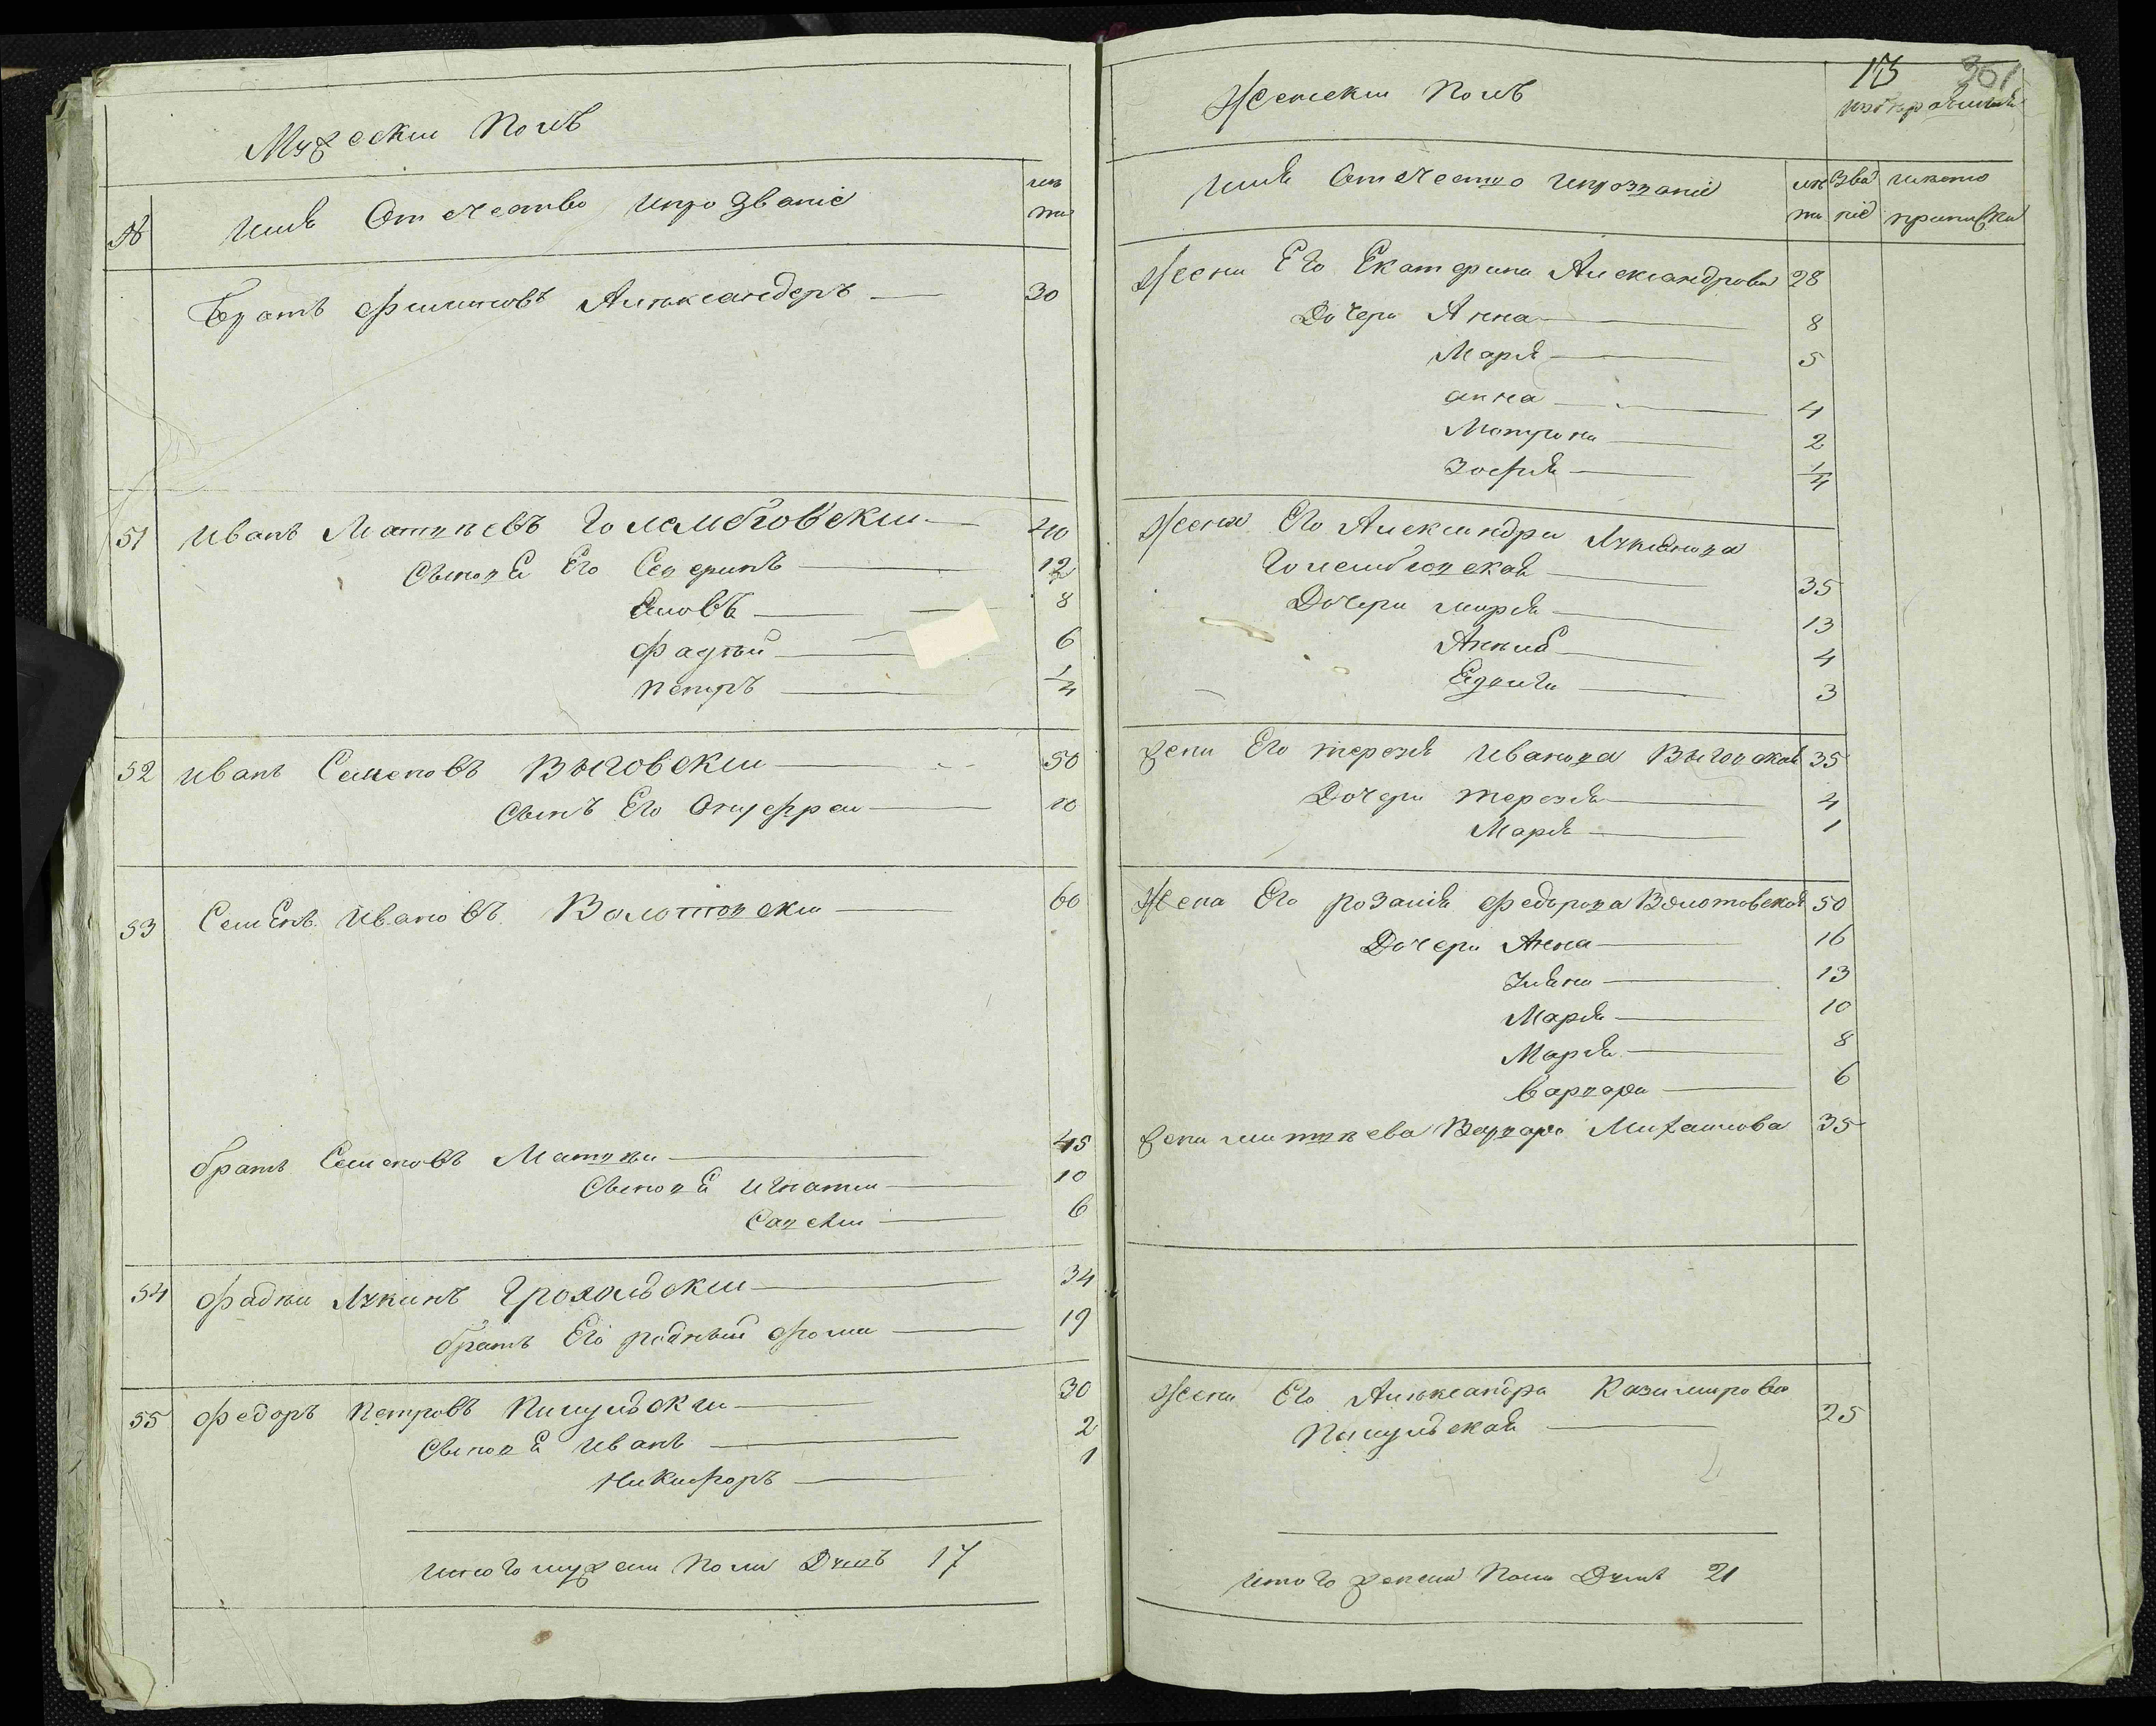 Мужескии Полъ
№
Имя Отечество ипрозваніе
лѣта
Братъ Филиповъ Алѣксандеръ 30
51 Иванъ Матвѣевъ Голембговскии 40
Сыновя Его Северинъ 12
8
Фадѣй 6
Петръ 1/4
52 Иванъ Семеновъ Выговскии 50
Сынъ Его Онуфреи 10
53 Семенъ Ивановъ Волотовскии 60
братъ Семеновъ Матвѣи 45
Сыновя Игнатии 10
6
54 Фадѣи Лукинъ Грохольскии 34
братъ Его родный Фома 19
55 Федоръ Петровъ Пишульскии 30
Сыновя Иванъ 2
Никифоръ 1
Итого мужеска Пола Душъ 17
173 361
Женскии Полъ
Имя Отечество ипрозваніе
лѣта Званіе иместо приписки
Жена Его Екатерина Александрова 28
Дочери Анна 8
Марія 5
анна 4
Матрона 2
Зофия 1/4
Жена Его Александра Лукянова
Голембговская 35
Дочери марія 13
4
3
жена Его терезя Иванова Выговская 35
Дочери терезя 4
Марія 1
Жена Его розалія Федорова Волотовская 50
Дочери Анна 16
Уляна 13
Марія 10
Марія 8
варвара 6
жена матвѣева Варвара Михаилова 35
Жена Его Алѣксандра Казимирова
Пишульская 25
Итого женска Пола Душъ 21